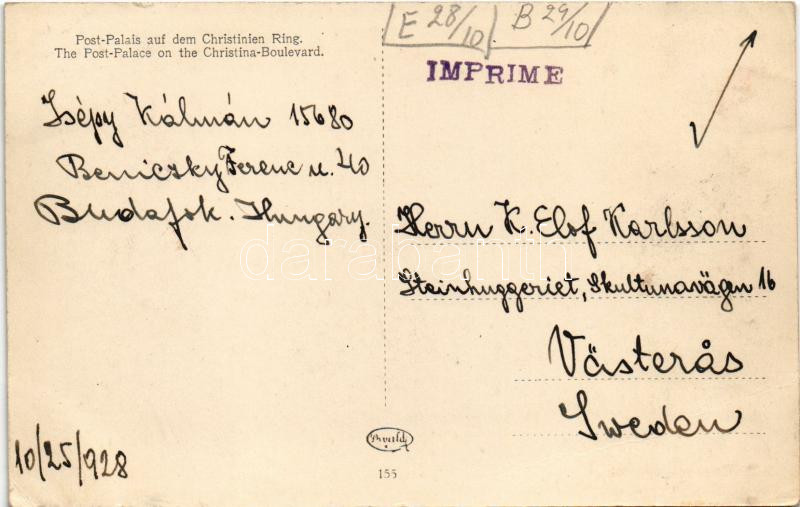 Post-Palais auf dem Christinien Ring.
The Post-Palace on the Christina-Boulevard.
E 28/10 B 29/10
IMPRIME
Isépy Kálmán 15680
Beniczky Ferenc u. 40
Budafok. Hungary.
Herrn K. Elof Karlsson
Steinhuggeriet, Skultunavägen 16
Västerås
Sweden
10/25/928
155
darabanth